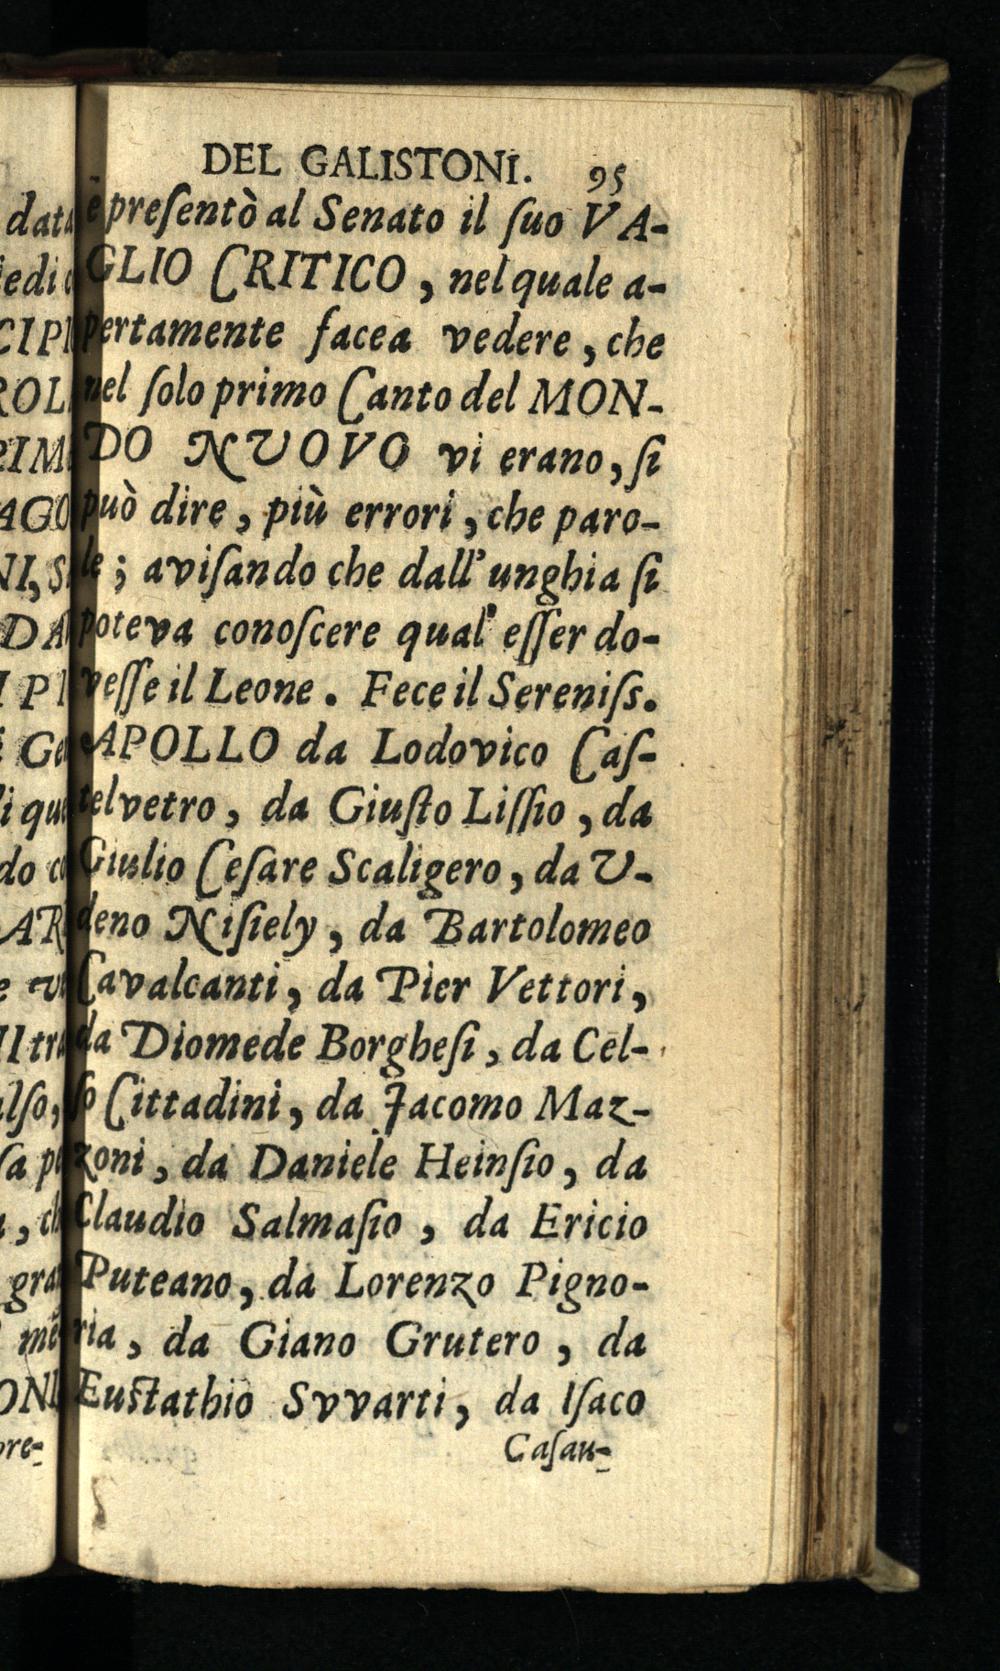 DEL GALISTONI. 95
e preſentò al Senato il ſuo VA-
GLIO CRITICO, nel quale a-
pertamente facea vedere, che
nel ſolo primo Canto del MON-
DO NUOVO vi erano, ſi
può dire, più errori, che paro-
le; aviſando che dall'unghia ſi
poteva conoſcere qual' eſſer do-
veſſe il Leone. Fece il Sereniſs.
APOLLO da Lodovico Caſ-
telvetro, da Giuſto Liſſio, da
Giulio Ceſare Scaligero, da U-
deno Niſiely, da Bartolomeo
Cavalcanti, da Pier Vettori,
da Diomede Borgheſi, da Cel-
ſo Cittadini, da Jacomo Maz-
zoni, da Daniele Heinſio, da
Claudio Salmaſio, da Ericio
Puteano, da Lorenzo Pigno-
ria, da Giano Grutero, da
Euſtathio Svvarti, da Iſaco
Caſau-